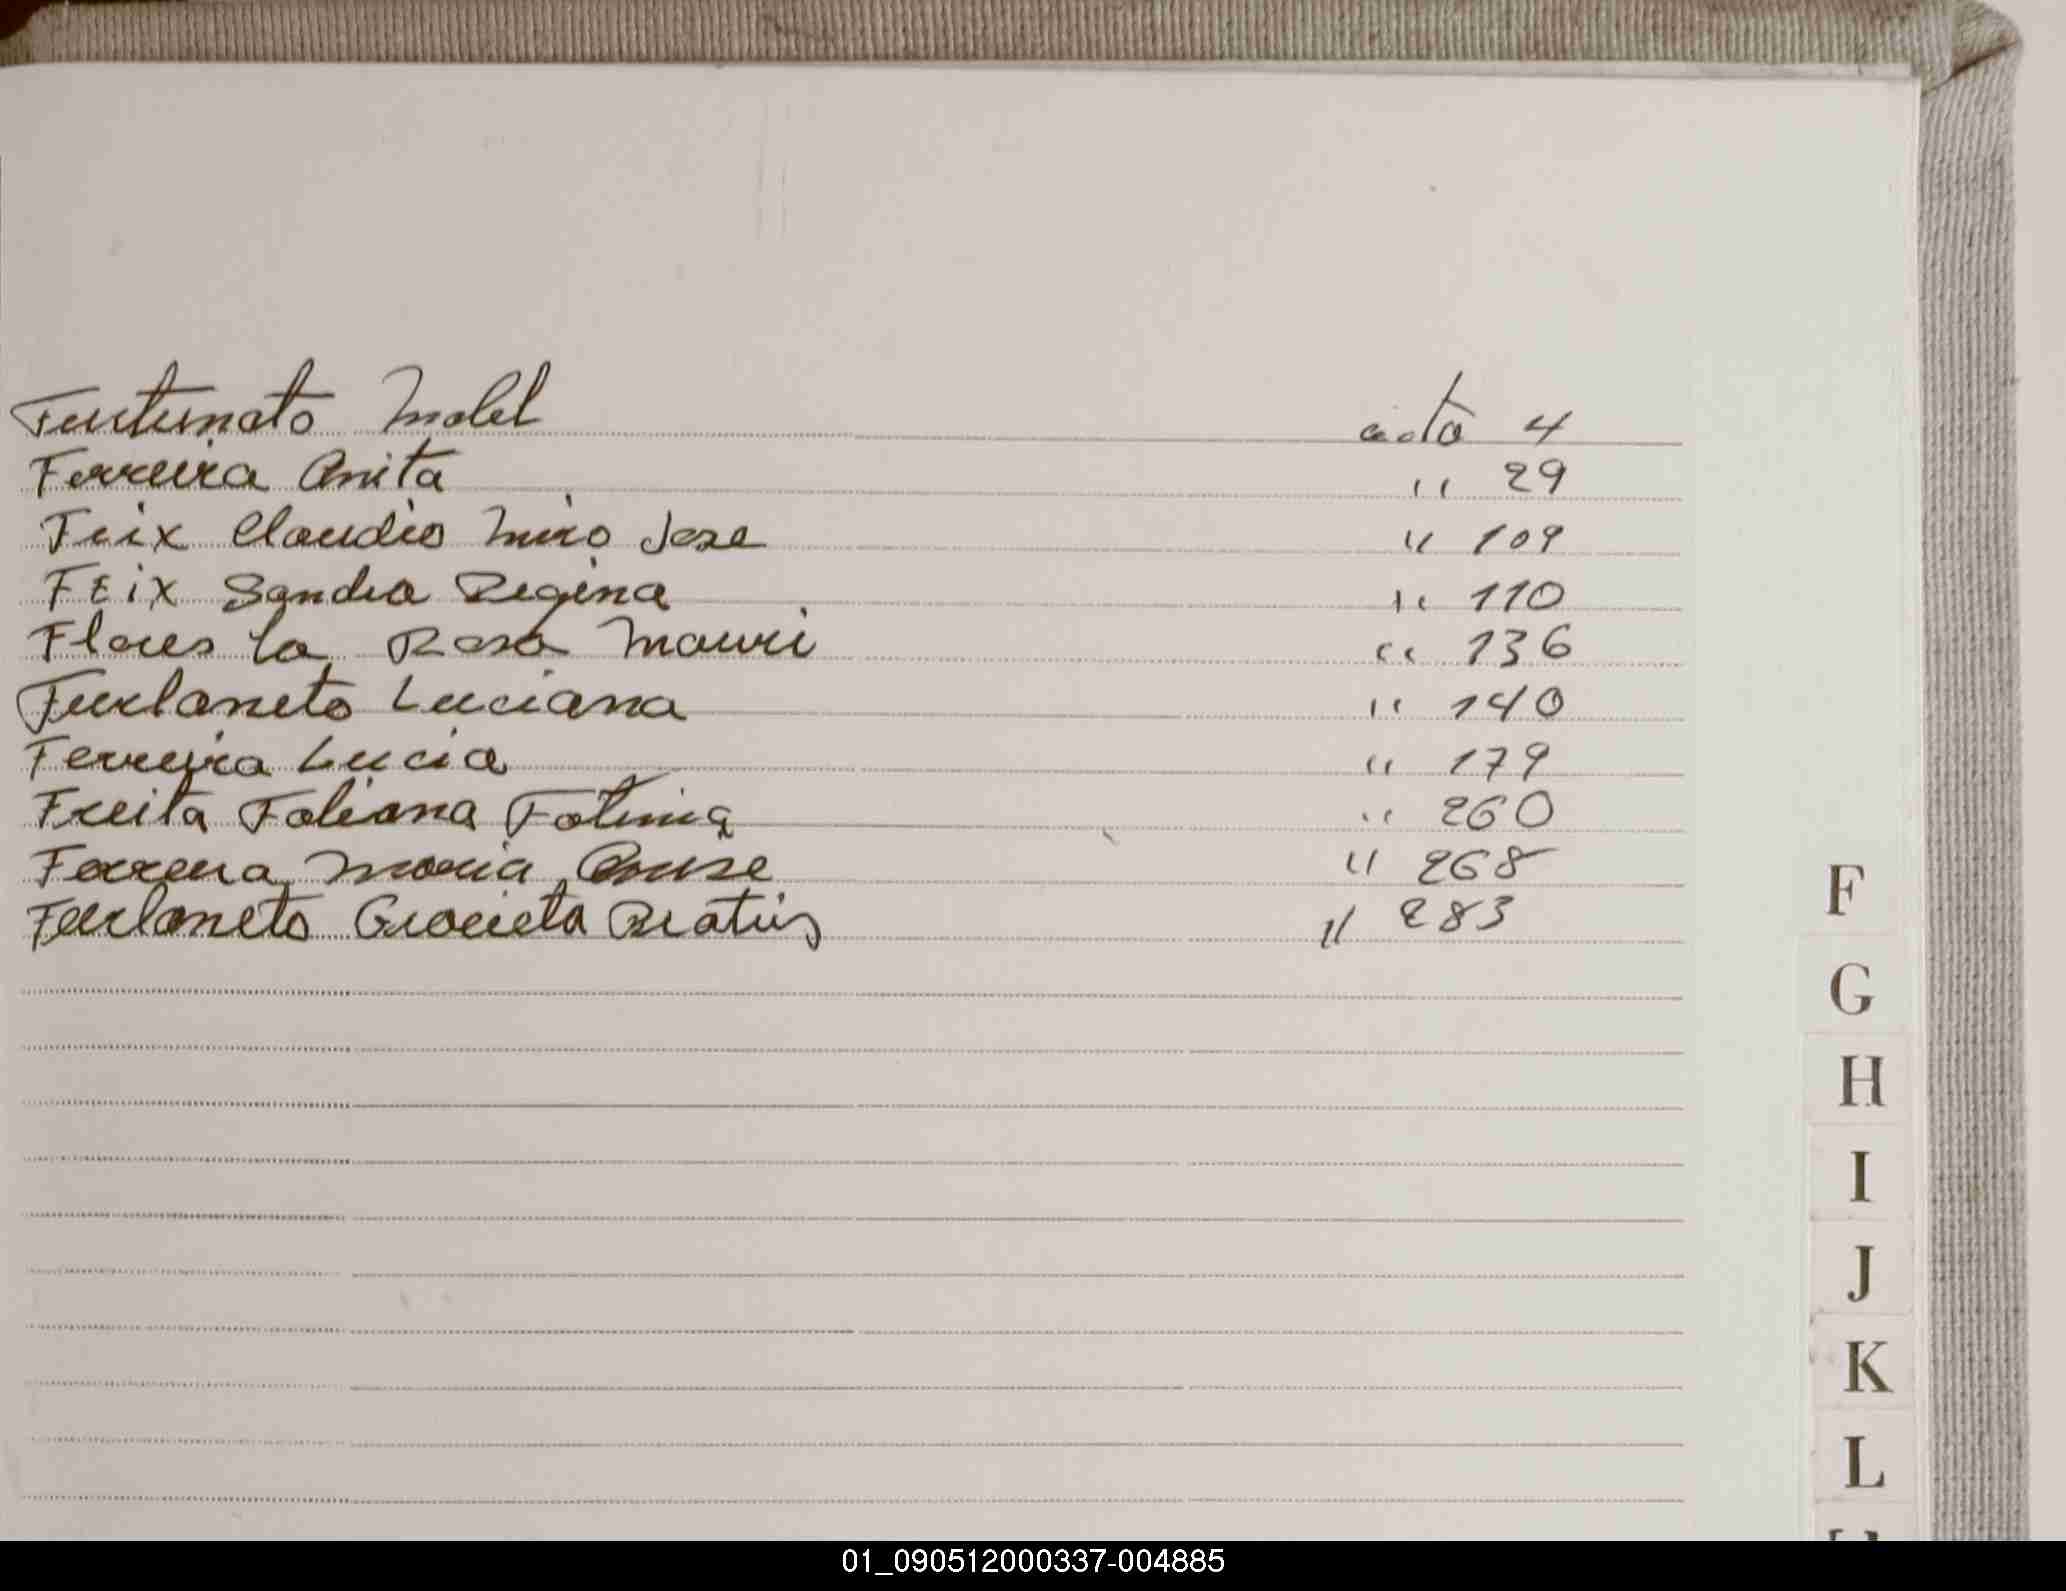 Furtunato Mabel acta 4
Ferreira Anita " 29
Feix Claudio Miro Jose " 109
FEix Sandra Regina " 110
Flores La Rosa Mauri " 136
Furlaneto Luciana " 140
Ferreyra Lucia " 179
Freita Fabiana Fatima " 260
Ferreira Maria " 268
Furlaneto Graciela Beatris " 283
F
G
H
I
J
K
L
01_090512000337-004885